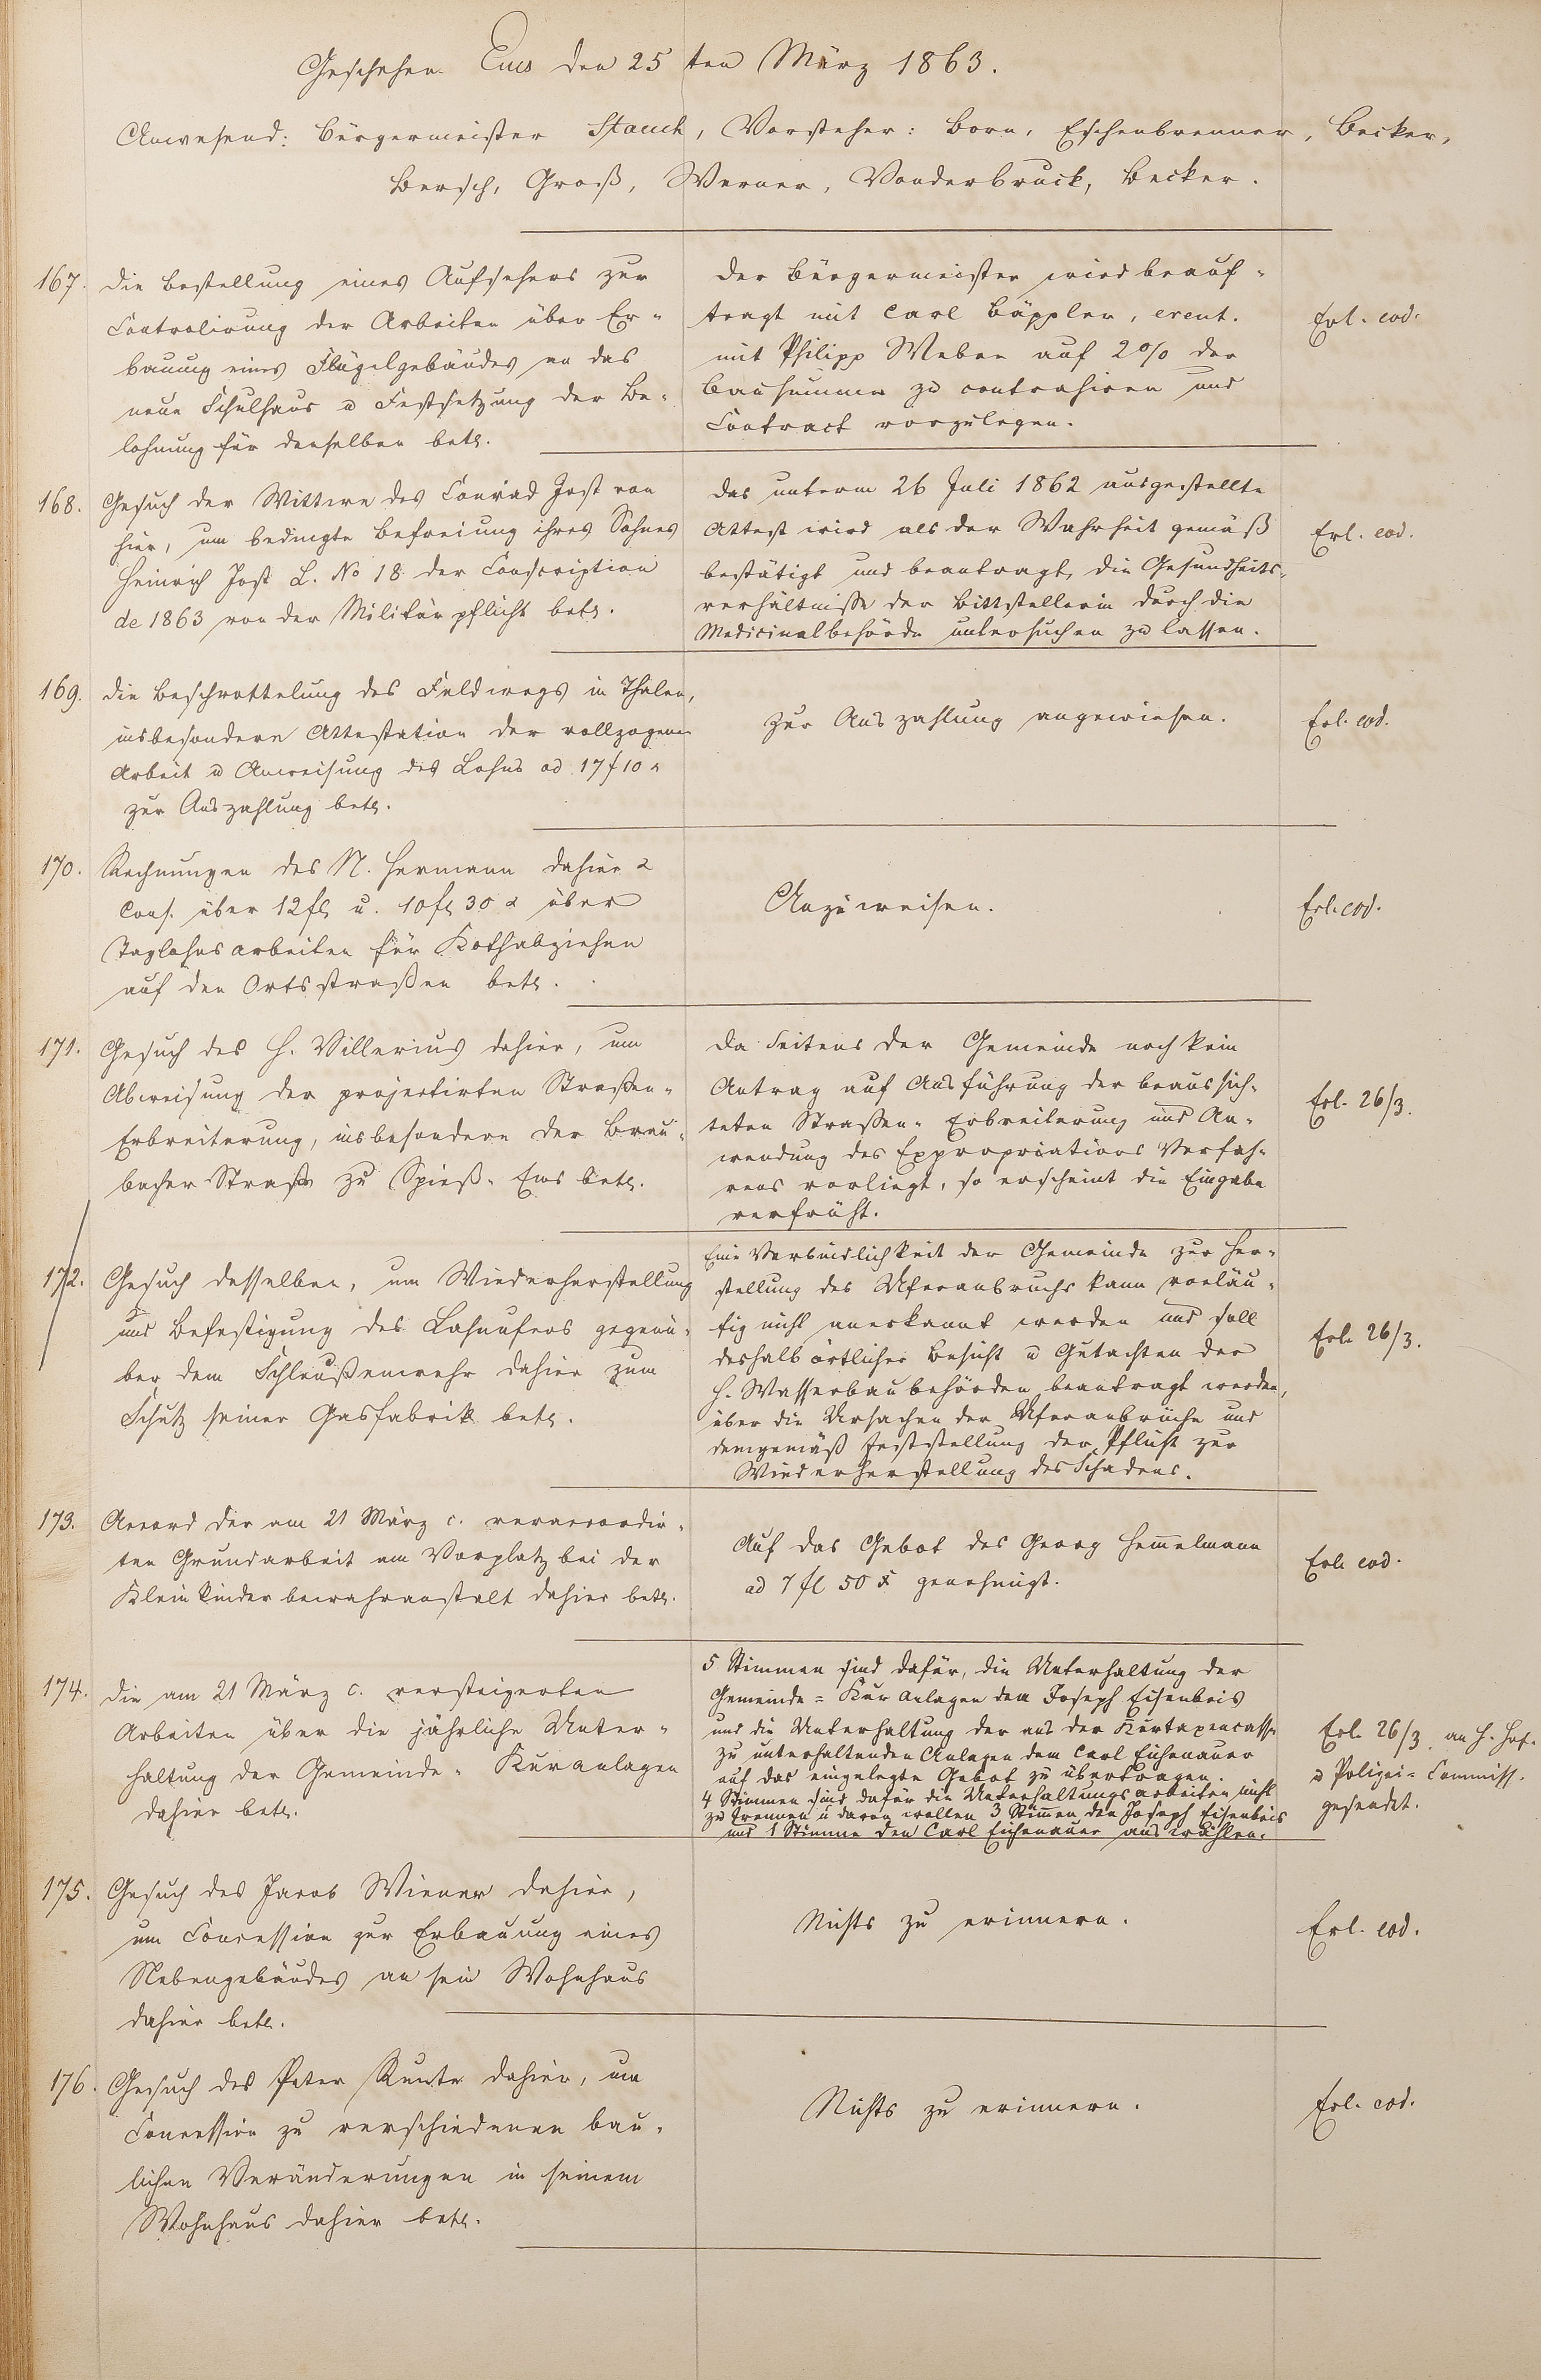 Geschehen Ems den 25ten März 1863.
Anwesend: Bürgermeister Stauch, Vorsteher: Born, Eschenbrenner, Becker,
Bersch, Groß, Werner, Vonderbruck, Becker.
167. Die Bestellung eines Aufsehers zur
Controlirung der Arbeiten über Er-
bauung eines Flügelgebäudes an das
neue Schulhaus u Festsetzung der Be-
lohnung für denselben betr.
Der Bürgermeister wird beauf-
tragt mit Carl Bäppler, event.
mit Philipp Weber auf 2% der
Bausumme zu contrahiren und
Contract vorzulegen.
Erl. eod.
168. Gesuch der Wittwe des Conrad Jost von
hier, um bedingte Befreiung ihres Sohnes
Heinrich Jost L. No 18 der Conscription
de 1863 von der Militärpflicht betr.
Das unterm 26 Juli 1862 ausgestellte
Attest wird als der Wahrheit gemäß
bestätigt und beantragt, die Gesundheits-
verhältnisse der Bittstellerin durch die
Medicinalbehörde untersuchen zu lassen.
Erl. eod.
169. Die Beschrottelung des Feldwegs in Thalen,
insbesondere Attestation der vollzogenen
Arbeit u Anweisung des Lohns ad 17 f 10 x
zur Auszahlung betr.
Zur Auszahlung angewiesen.
Erl. eod.
170. Rechnungen des N. Hermann dahier &
Cons. über 12 fl u. 10 fl 30 x über
Taglohnsarbeiten für Kothabziehen
auf den Ortsstraßen betr.
Anzuweisen.
Erl. eod.
171. Gesuch des H. Villerius dahier, um
Abweisung der projectirten Straßen-
Erbreiterung, insbesondere der Brau-
bacher Straße zu Spieß-Ems betr.
Da Seitens der Gemeinde noch kein
Antrag auf Ausführung der beaussich-
teten Straßen-Erbreiterung und An-
wendung des Expropriations Verfah-
rens vorliegt, so erscheint die Eingabe
verfrüht.
Erl. 26/3.
172. Gesuch desselben, um Wiederherstellung
und Befestigung des Lahnufers gegenü-
ber dem Schleußenwehr dahier zum
Schutz seiner Gasfabrik betr.
Eine Verbindlichkeit der Gemeinde zur Her-
stellung des Uferanbruchs kann vorläu-
fig nicht anerkannt werden und soll
deshalb örtlicher Besicht u Gutachten der
H. Wasserbaubehörden beantragt werden,
über die Ursachen der Uferanbrüche und
demgemäß Feststellung der Pflicht zur
Wiederherstellung des Schadens.
Erl. 26/3.
173. Accord der am 21 März c. veraccordir-
ten Grundarbeit am Vorplatz bei der
Kleinkinderbewahranstalt dahier betr.
Auf das Gebot des Georg Hemelmann
ad 7 fl 50 x genehmigt.
Erl. eod.
174. Die am 21 März c. versteigerten
Arbeiten über die jährliche Unter-
haltung der Gemeinde-Kuranlagen
dahier betr.
5 Stimmen sind dafür, die Unterhaltung der
Gemeinde=Kuranlagen dem Joseph Eisenbeis
und die Unterhaltung der aus der Kurtaxencasse
zu unterhaltenden Anlagen dem Carl Eichenauer
auf das eingelegte Gebot zu übertragen.
4 Stimmen sind dafür die Unterhaltungsarbeiten nicht
zu trennen u davon wollen 3 Stimmen den Joseph Eisenbeis
und 1 Stimme den Carl Eichenauer auswählen.
Erl. 26/3. an H. Hof-
u Polizei=Commiss.
gesendet.
175. Gesuch des Jacob Wiener dahier,
um Concession zur Erbauung eines
Nebengebäudes an sein Wohnhaus
dahier betr.
Nichts zu erinnern.
Erl. eod.
176. Gesuch des Peter Kunte dahier, um
Concession zu verschiedenen bau-
lichen Veränderungen in seinem
Wohnhaus dahier betr.
Nichts zu erinnern.
Erl. eod.